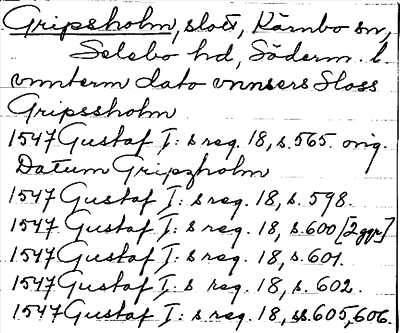 Gripsholm, slott, Kärnbo sn,
Selebo hd, Söderm. l.
vnnterm dato vnnsers Sloss
Gripssholm
1547 Gustaf I: s reg. 18, s. 565. orig.
Datum Gripzholm
1547 Gustaf I: s reg. 18, s. 598.
1547 Gustaf I: s reg. 18, s. 600 [2 ggr]
1547 Gustaf I: s reg. 18, s. 601.
1547 Gustaf I: s reg. 18, s. 602.
1547 Gustaf I: s reg. 18, ss. 605, 606.